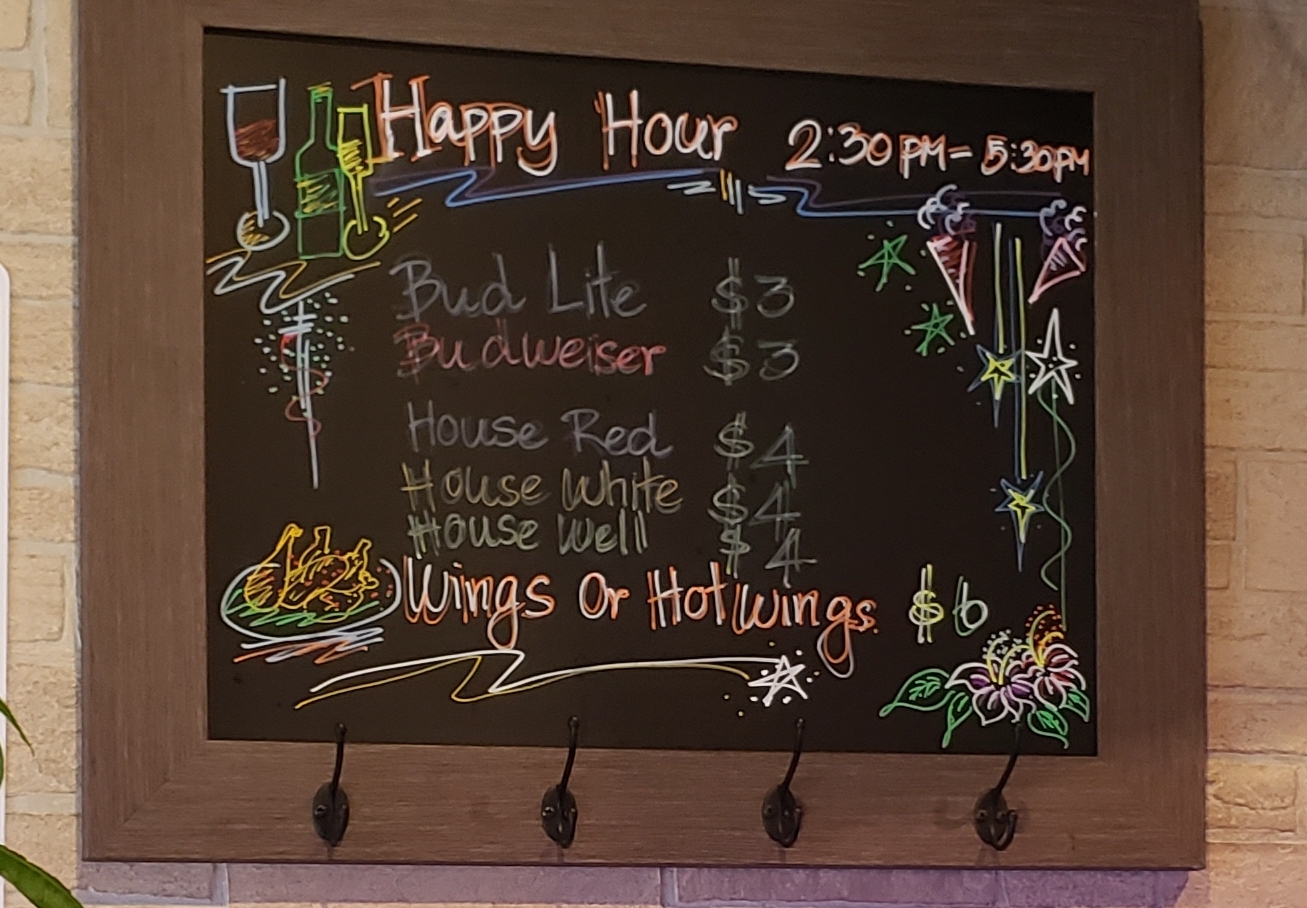 Happy Hour 2:30PM - 5:30PM
Bud Lite $3
Budweiser $3
House Red $4
House White $4
House Well $4
Wings Or Hotwings $6